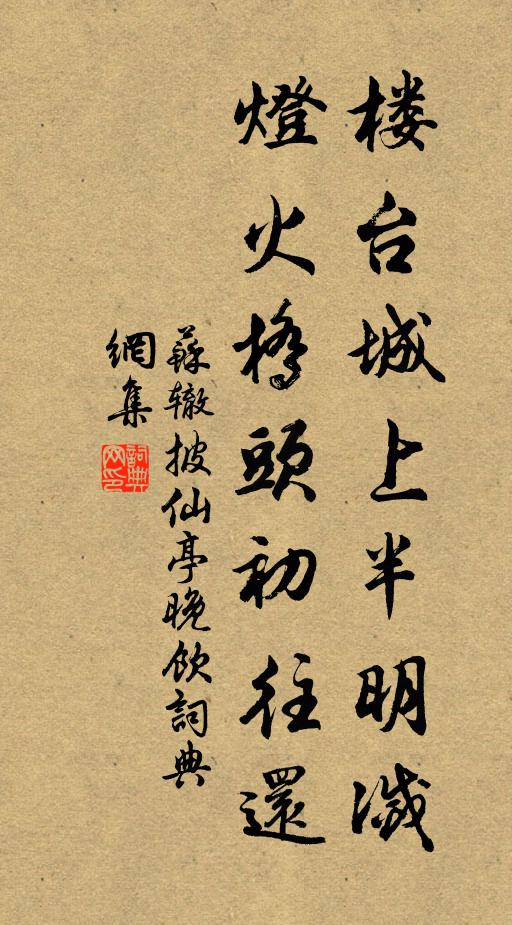 楼台城上半明滅
燈火橋頭初往還
蘇辙披仙亭晚飲詞典
網集
詞典網印